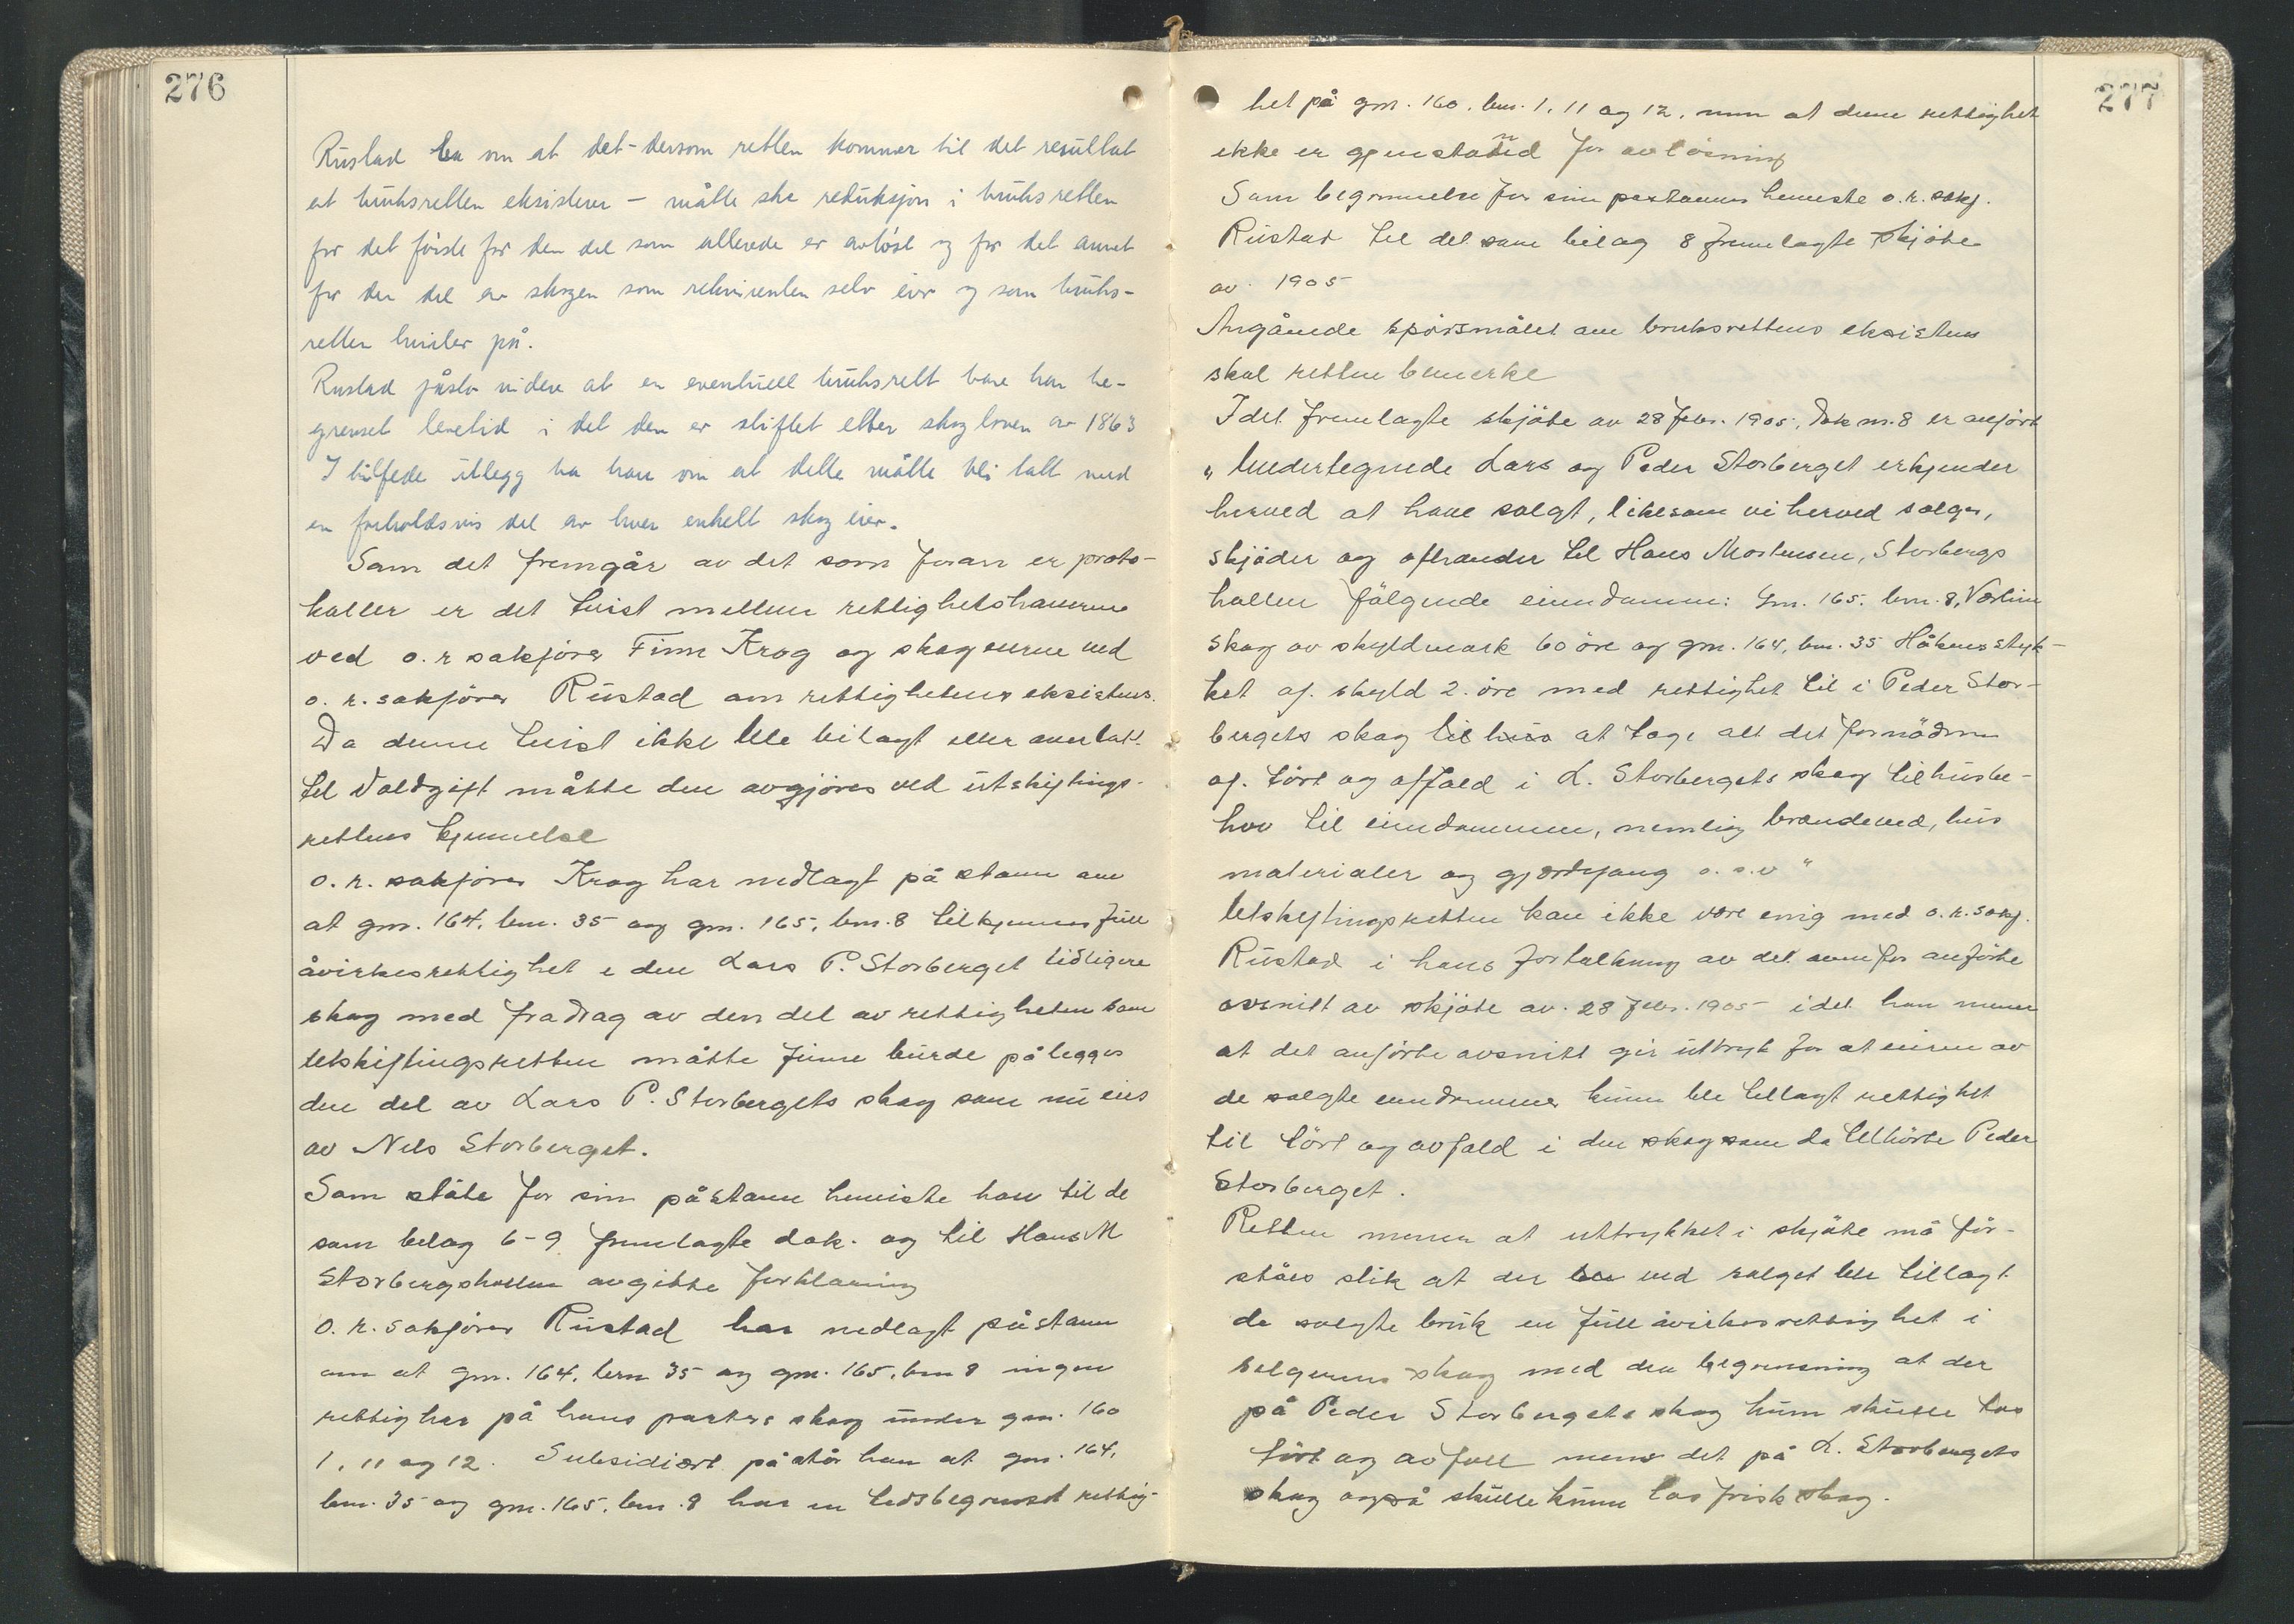 276
Rustad ba om at det - dersom retten kommer til det resultat
at bruksretten eksisterer - måtte ske reduksjon i bruksretten
for det første for den del som allerede er avløst og for det annet
for den del av skogen som rekvirenten selv eier og som bruks-
retten hviler på.
Rustad påstår videre at en eventuell bruksrett bare har be-
grenset levetid i det den er stiftet etter skogloven av 1863
I tilfelle utlegg ba han om at dette måtte bli tatt med
en forholdsvis del av hver enkelt skog eier.
Som det fremgår av det som foran er proto-
koller er det tvist mellem rettighetshaverne
ved o.r sakfører Finn Krog og skogeierne ved
o. r. sakfører Rustad om rettighetens eksistens.
Da denne tvist ikke ble bilagt eller overlatt
til voldgift måtte den avgjøres ved utskiftings-
rettens kjennelse
o. r. sakfører Krog har nedlagt på stann om
at gnr. 164, bnr. 35 og gnr. 165, bnr. 8 tilkjennes full
åvirkesrettighet i den Lars P. Storberget tidligere
skog med fradrag av den del av rettigheten som
utskiftingsretten måtte finne burde pålegges
den del av Lars P. Storbergets skog som nu eies
av Nils Storberget.
Som støte for sin påstann henviste han til de
som bilag 6-9 fremlagte dok. og til Hans M
Storbergshollen avgitte forklaring
o. r. sakfører Rustad har nedlagt påstann
om at gnr. 164, bnr 35 og gnr. 165, bnr 8 ingen
rettig har på hans parters skog under gnr. 160
1, 11 og 12. Subsidiært påstår han at gnr. 164,
bnr. 35 og gnr. 165, bnr. 8 har en tidsbegrenset rettig-
277
het på gnr. 160, bnr. 1, 11 og 12, men at denne rettighet
ikke er gjenstannd for avløsning
Som begrunnelse for sin påstann henviste o. r. sakf.
Rustad til det som bilag 8 fremlagte skjøte
av 1905
Angående spørsmålet om bruksrettens eksistens
skal retten bemerke
I det fremlagte skjøte av 28 febr. 1905, dok nr. 8 er anført
„Undertegnede Lars og Peder Storberget erkjender
herved at have solgt, likesom vi herved sælger,
skjøder og afhænder til Hans Mortensen, Storbergs
hollen følgende eiendomme: Gnr. 165, bnr. 8,
skog av skyldmark 60 øre og gnr. 164, bnr. 35 Håkensstyk-
ket af skyld 2 øre med rettighet til i Peder Stor-
bergets skog til hus at tage alt det fornødne
af tørt og affald i L. Storbergets skog til husbe-
hov til eiendommene, nemlig brændeved, hus
materialer og gjærdefang o.s.v“
Utskiftingsretten kan ikke være enig med o. r. sakf.
Rustad i hans fortolkning av det ovenfor anførte
avsnitt av skjøte av 28 febr. 1905 idet han mener
at det anførte avsnitt gir uttryk for at eieren av
de solgte eiendommer kunn ble tillagt rettighet
til tørt og avfald i den skog som da tilhørte Peder
Storberget.
Retten mener at uttrykket i skjøte må for-
ståes slik at der ble ved salget ble tillagt
de solgte bruk en full åvirkesrettighet i
selgerens skog med den begrensning at der
på Peder Storbergets skog kunn skulle tas
tørt og avfall mens det på L. Storbergets
skog også skulle kunn tas frisk skog.